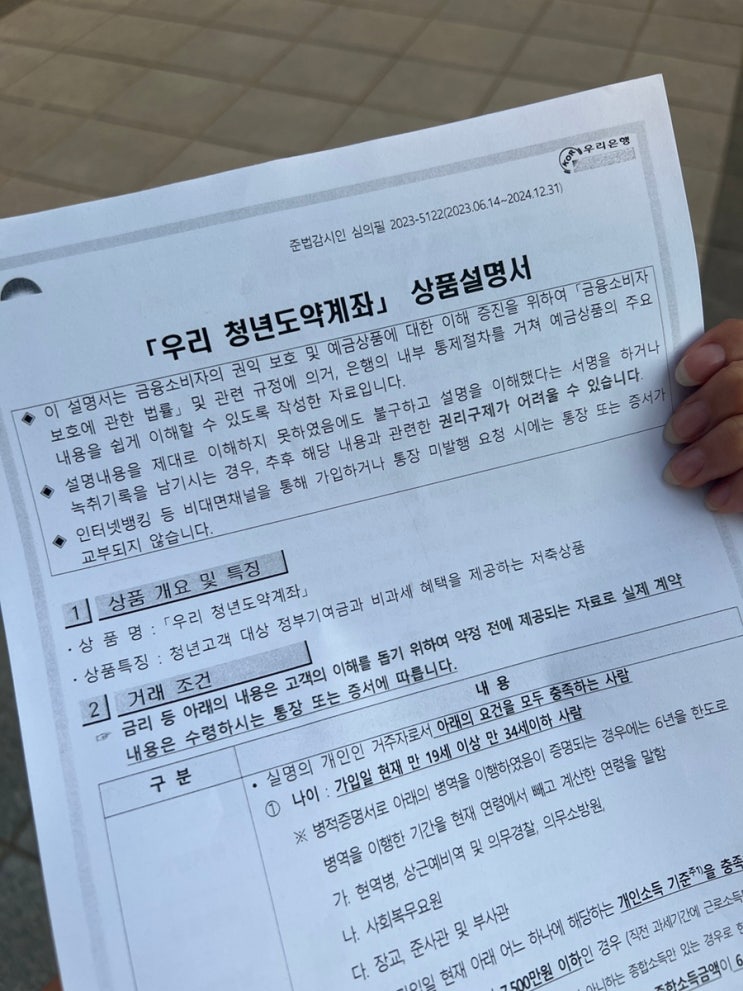 KOR 우리은행
준법감시인 심의필 2023-5122(2023.06.14~2024.12.31)
「우리 청년도약계좌」 상품설명서
◈ 이 설명서는 금융소비자의 권익 보호 및 예금상품에 대한 이해 증진을 위하여 「금융소비자
보호에 관한 법률」 및 관련 규정에 의거, 은행의 내부 통제절차를 거쳐 예금상품의 주요
내용을 쉽게 이해할 수 있도록 작성한 자료입니다.
◈ 설명내용을 제대로 이해하지 못하였음에도 불구하고 설명을 이해했다는 서명을 하거나
녹취기록을 남기시는 경우, 추후 해당 내용과 관련한 권리구제가 어려울 수 있습니다.
◈ 인터넷뱅킹 등 비대면채널을 통해 가입하거나 통장 미발행 요청 시에는 통장 또는 증서가
교부되지 않습니다.
1 상품 개요 및 특징
· 상 품 명 : 「우리 청년도약계좌」
· 상품특징 : 청년고객 대상 정부기여금과 비과세 혜택을 제공하는 저축상품
2 거래 조건
☞ 금리 등 아래의 내용은 고객의 이해를 돕기 위하여 약정 전에 제공되는 자료로 실제 계약
내용은 수령하시는 통장 또는 증서에 따릅니다.
구 분
내 용
• 실명의 개인인 거주자로서 아래의 요건을 모두 충족하는 사람
① 나이 : 가입일 현재 만 19세 이상 만 34세이하 사람
※ 병적증명서로 아래의 병역을 이행하였음이 증명되는 경우에는 6년을 한도로
병역을 이행한 기간을 현재 연령에서 빼고 계산한 연령을 말함
가. 현역병, 상근예비역 및 의무경찰, 의무소방원,
나. 사회복무요원
다. 장교, 준사관 및 부사관
가입일 현재 아래 어느 하나에 해당하는 개인소득 기준주1)을 충족
7,500만원 이하인 경우 (직전 과세기간에 근로소득
아니하는 종합소득만 있는 경우로
종합소득금액이 6